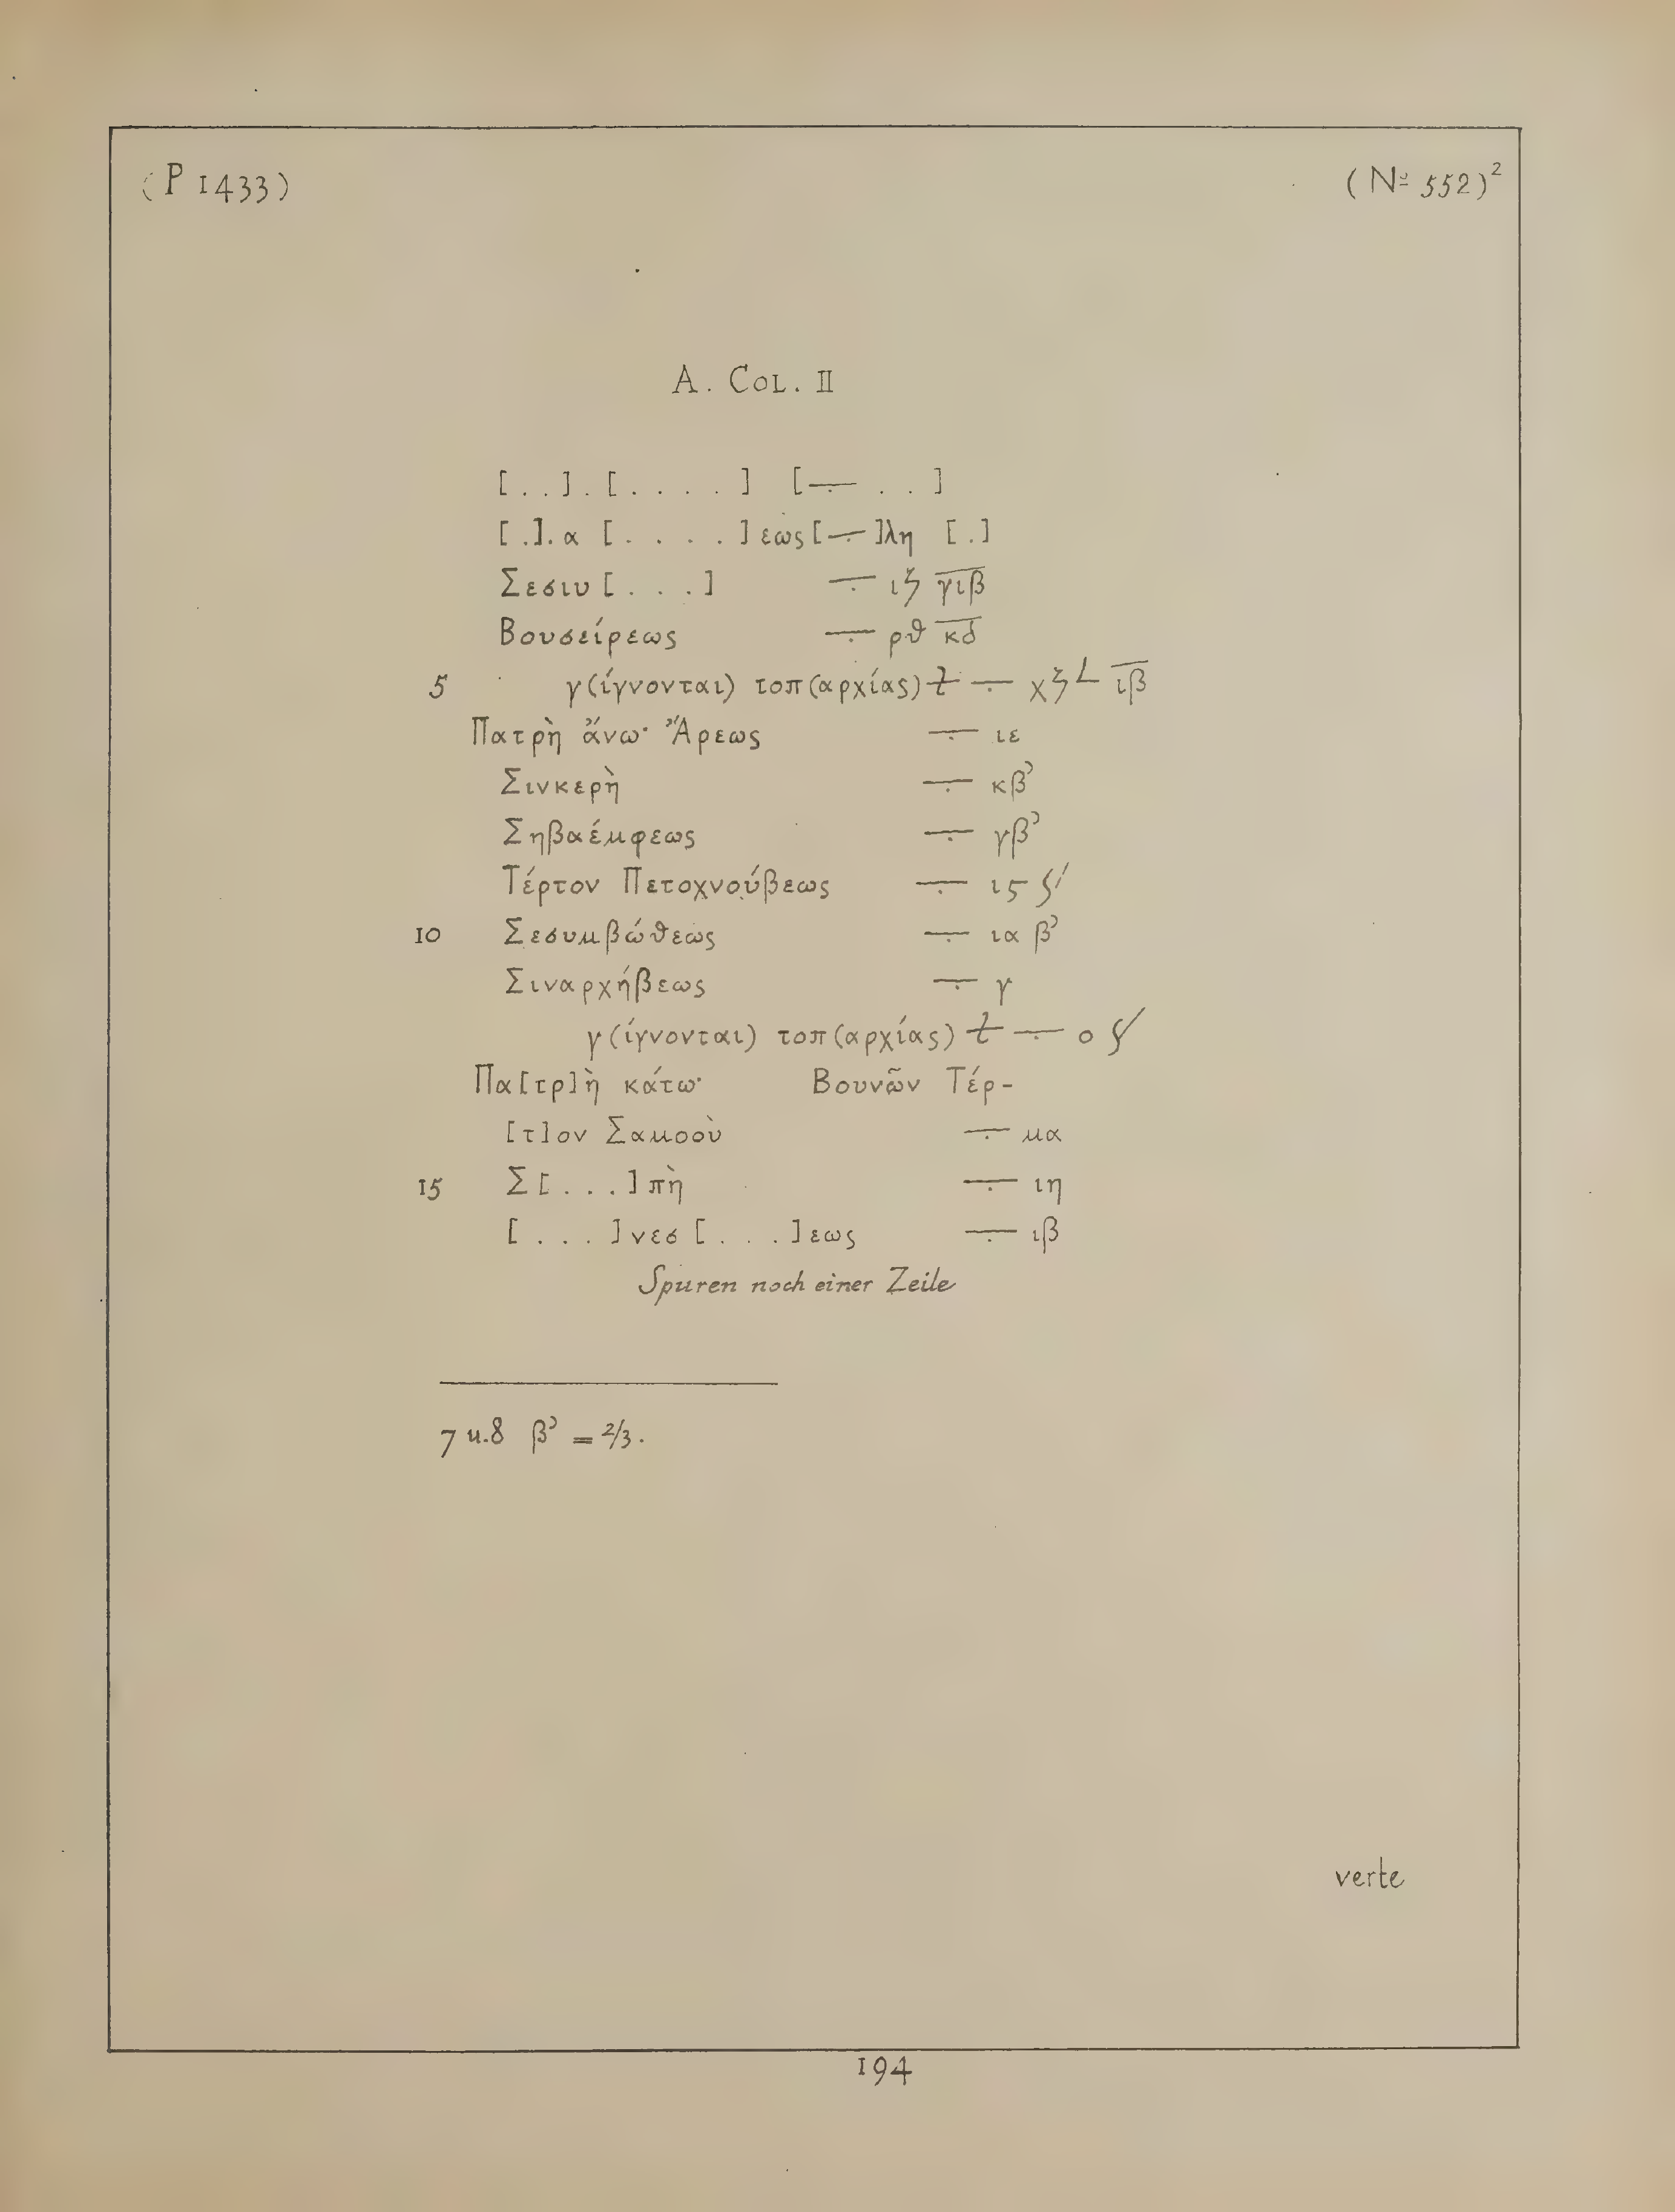 (P 1433)
(№ 552)²
A. COL. II
[..].[....] [÷ ..]
[.].α [....]εως[÷]λη [.]
Σεσιυ[...] ÷ ιζ γ̅ι̅β̅
Βουσείρεως ÷ ρθ κ̅δ̅
5 γ(ίγνονται) τοπ(αρχίας) ÷ χζ L ι̅β̅
Πατρὴ ἄνω· Ἄρεως ÷ ιε
Σινκερὴ ÷ κβ'
Σηβαέμφεως ÷ γβ'
Τέρτον Πετοχνούβεως ÷ ις ϛ'
10 Σεσυμβώθεως ÷ ια β'
Σιναρχήβεως ÷ γ
γ(ίγνονται) τοπ(αρχίας) ÷ ο ϛ'
Πα[τρ]ὴ κάτω· Βουνῶν Τέρ-
[τ]ον Σαμοοὺ ÷ μα
15 Σ[...]πὴ ÷ ιη
[...]νεσ[...]εως ÷ ιβ
Spuren noch einer Zeile
7 u.8 β' = 2/3.
verte
194